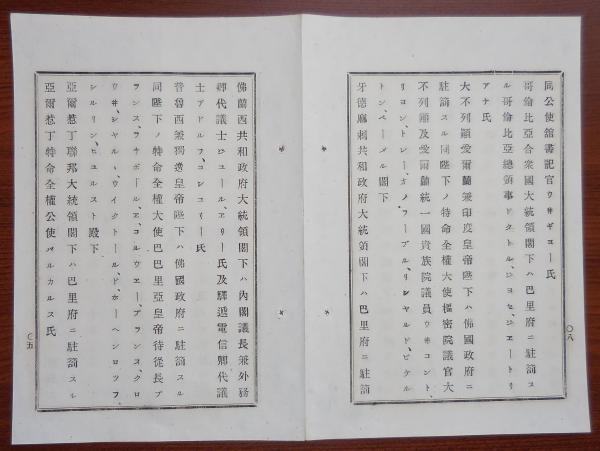 同公使舘書記官ウ井ギユー氏
哥倫比亞合衆國大統領閣下ハ巴里府ニ駐箚ス
ル哥倫比亞總領事ドクトル、ジヨセ、ジエートリ
アナ氏
大不列顚愛爾蘭兼印度皇帝陛下ハ佛國政府ニ
駐箚スル同陛下ノ特命全權大使樞密院議官大
不列顚及愛爾蘭統一國貴族院議員ウ井コント、
リヨン、トレー、オノ、ラーブル、リシヤルド、ビケル
トン、ペーメル閣下
牙德麻剌共和政府大統領閣下ハ巴里府ニ駐箚
〇八
佛蘭西共和政府大統領閣下ハ內閣議長兼外務
卿代議士ジユール、フエリー氏及驛遞電信卿代議
士アドルフ、コシユリー氏
普魯西兼獨逸皇帝陛下ハ佛國政府ニ駐箚スル
同陛下ノ特命全權大使巴巴里亞皇帝侍從長プ
ランス、ラチボールエ、コルウエー、プランス、クロ
ウ井、シヤルヽ、ウイクトール、ド、ホーヘンロツフ、
シルリン、ヒユルスト殿下
亞爾惹丁聯邦大統領閣下ハ巴里府ニ駐箚スル
亞爾惹丁特命全權公使バルカルス氏
〇五